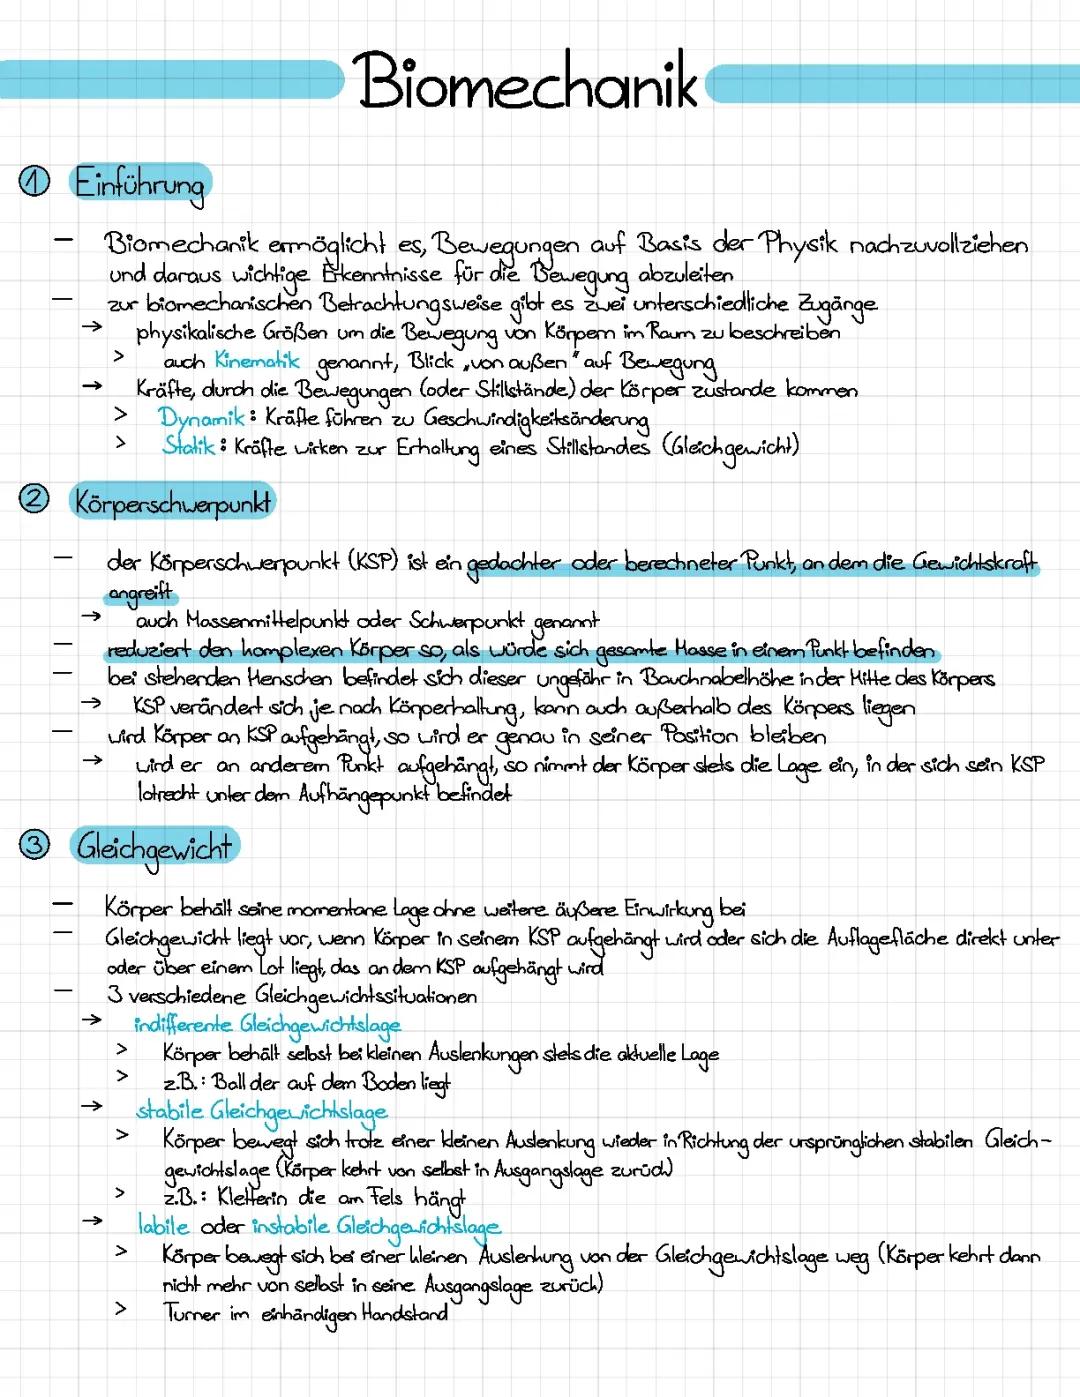 Biomechanik
① Einführung
– Biomechanik ermöglicht es, Bewegungen auf Basis der Physik nachzuvollziehen
und daraus wichtige Erkenntnisse für die Bewegung abzuleiten
– zur biomechanischen Betrachtungsweise gibt es zwei unterschiedliche Zugänge
→ physikalische Größen um die Bewegung von Körpern im Raum zu beschreiben
> auch Kinematik genannt, Blick „von außen" auf Bewegung
→ Kräfte, durch die Bewegungen (oder Stillstände) der Körper zustande kommen
> Dynamik: Kräfte führen zu Geschwindigkeitsänderung
> Statik: Kräfte wirken zur Erhaltung eines Stillstandes (Gleichgewicht)
② Körperschwerpunkt
– der Körperschwerpunkt (KSP) ist ein gedachter oder berechneter Punkt, an dem die Gewichtskraft
angreift
→ auch Massenmittelpunkt oder Schwerpunkt genannt
– reduziert den komplexen Körper so, als würde sich gesamte Masse in einem Punkt befinden
– bei stehenden Menschen befindet sich dieser ungefähr in Bauchnabelhöhe in der Mitte des Körpers
→ KSP verändert sich je nach Körperhaltung, kann auch außerhalb des Körpers liegen
– wird Körper an KSP aufgehängt, so wird er genau in seiner Position bleiben
→ wird er an anderem Punkt aufgehängt, so nimmt der Körper stets die Lage ein, in der sich sein KSP
lotrecht unter dem Aufhängepunkt befindet
③ Gleichgewicht
– Körper behält seine momentane Lage ohne weitere äußere Einwirkung bei
– Gleichgewicht liegt vor, wenn Körper in seinem KSP aufgehängt wird oder sich die Auflagefläche direkt unter
oder über einem Lot liegt, das an dem KSP aufgehängt wird
– 3 verschiedene Gleichgewichtssituationen
→ indifferente Gleichgewichtslage
> Körper behält selbst bei kleinen Auslenkungen stets die aktuelle Lage
> z.B.: Ball der auf dem Boden liegt
→ stabile Gleichgewichtslage
> Körper bewegt sich trotz einer kleinen Auslenkung wieder in Richtung der ursprünglichen stabilen Gleich-
gewichtslage (Körper kehrt von selbst in Ausgangslage zurück)
> z.B.: Kletterin die am Fels hängt
→ labile oder instabile Gleichgewichtslage
> Körper bewegt sich bei einer kleinen Auslenkung von der Gleichgewichtslage weg (Körper kehrt dann
nicht mehr von selbst in seine Ausgangslage zurück)
> Turner im einhändigen Handstand